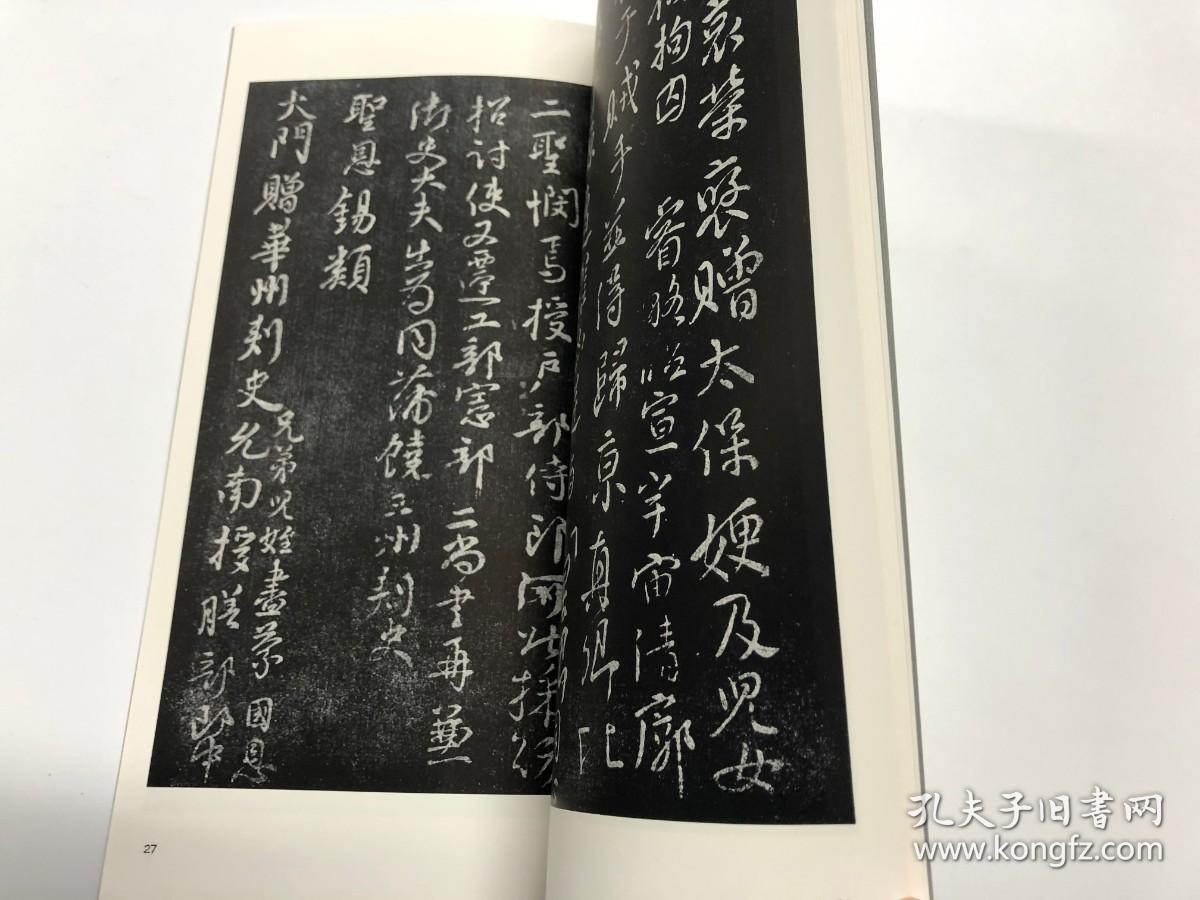 哀榮褒贈太保嬸及兒女
被拘囚 睿略昭宣宇宙清廓
於賊手並得歸京真卿比
二聖憫焉授戶部侍郎河北採訪
招討使又遷工部憲部二尚書再兼
御史大夫出為同蒲饒三州刺史
聖恩錫類
大門贈華州刺史
兄弟兒姪盡蒙國恩
允南授膳部郎中
27
孔夫子旧书网
www.kongfz.com